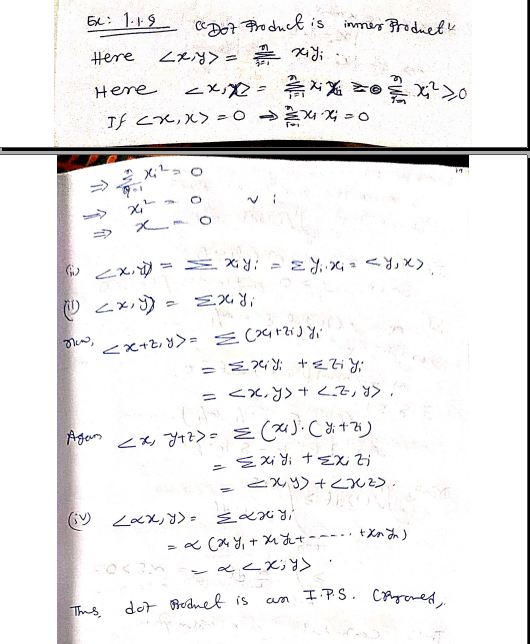 Ex: 1.1.9 "Dot Product is inner Product"
Here <x,y> = Σ_{i=1}^{n} xᵢyᵢ
Here <x,x> = Σ_{i=1}^{n} xᵢ xᵢ = Σ_{i=1}^{n} xᵢ² ≥ 0
If <x,x> = 0 ⇒ Σ_{i=1}^{n} xᵢ·xᵢ = 0
⇒ Σ_{i=1}^{n} xᵢ² = 0
⇒ xᵢ² = 0 ∀ i
⇒ x = 0
(ii) <x,y> = Σ xᵢyᵢ = Σ yᵢ.xᵢ = <y,x>
(iii) <x,y> = Σxᵢyᵢ
Now, <x+z,y> = Σ (xᵢ+zᵢ)yᵢ
= Σxᵢyᵢ + Σzᵢyᵢ
= <x,y> + <z,y>.
Again <x, y+z> = Σ(xᵢ).(yᵢ+zᵢ)
= Σxᵢyᵢ + Σxᵢzᵢ
= <x,y> + <x z>.
(iv) <αx,y> = Σαxᵢyᵢ
= α (x₁y₁ + x₂y₂ + ------ + xₙyₙ)
= α <x,y>
Thus, dot Product is an I.P.S. (Proved,